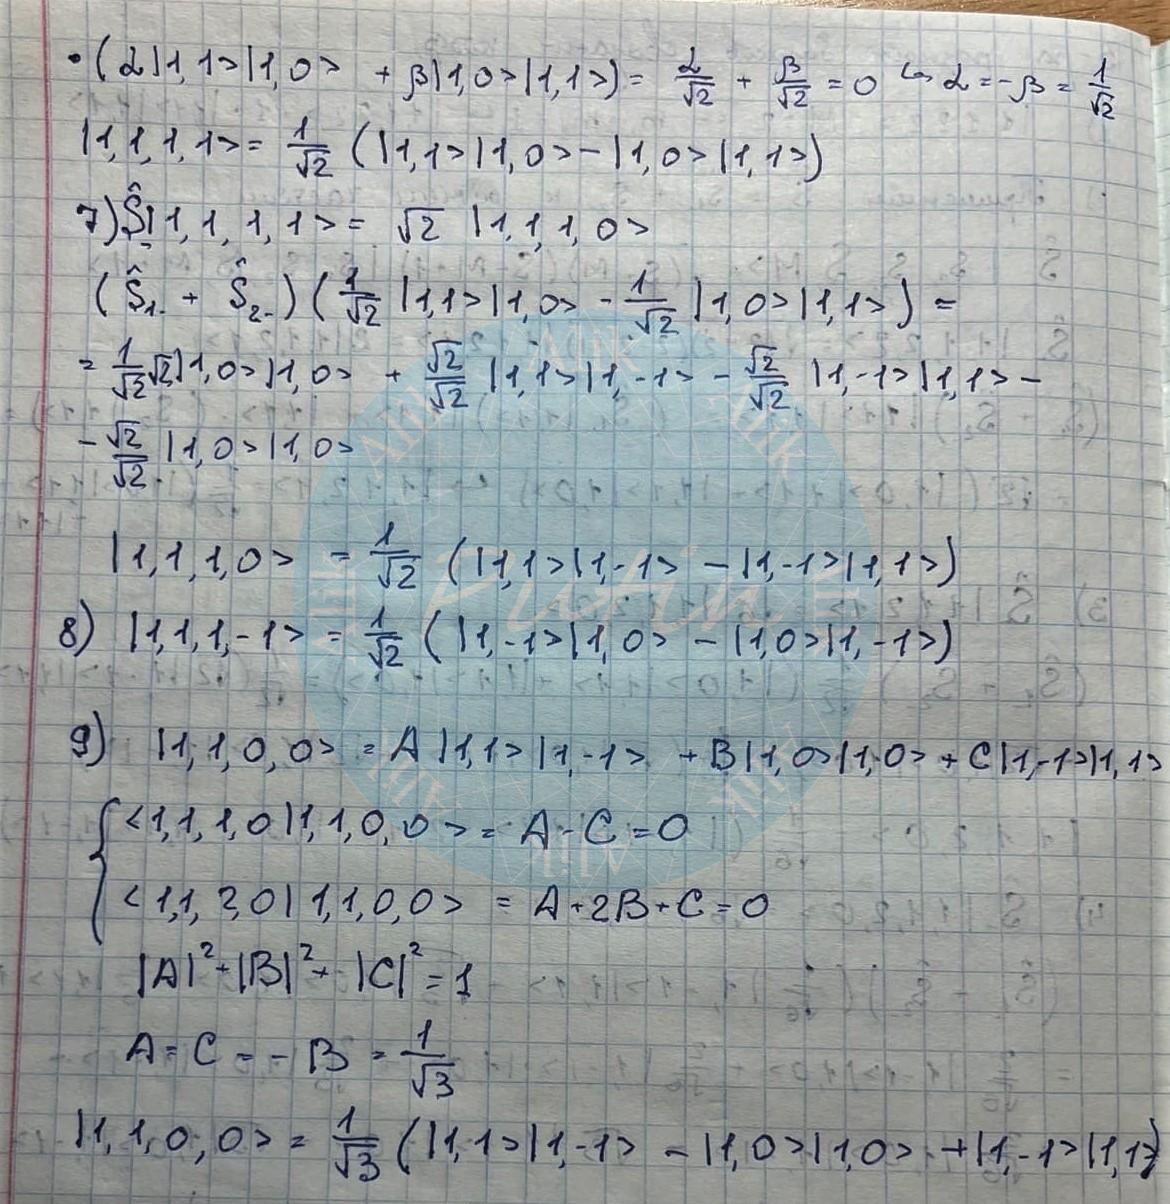 ·(α|1,1>|1,0> + β|1,0>|1,1>) = α/√2 + β/√2 = 0 ↪ α = -β = 1/√2
|1,1,1,1> = 1/√2 (|1,1>|1,0> - |1,0>|1,1>)
7) Ŝ_|1,1,1,1> = √2 |1,1,1,0>
(Ŝ₁₋ + Ŝ₂₋)(1/√2 |1,1>|1,0> - 1/√2 |1,0>|1,1>) =
= 1/√2 √2|1,0>|1,0> + √2/√2 |1,1>|1,-1> - √2/√2 |1,-1>|1,1> -
- √2/√2 |1,0>|1,0>
|1,1,1,0> = 1/√2 (|1,1>|1,-1> - |1,-1>|1,1>)
8) |1,1,1,-1> = 1/√2 (|1,-1>|1,0> - |1,0>|1,-1>)
9) |1,1,0,0> = A|1,1>|1,-1> + B|1,0>|1,0> + C|1,-1>|1,1>
<1,1,1,0|1,1,0,0> = A - C = 0
<1,1,2,0|1,1,0,0> = A + 2B + C = 0
|A|² + |B|² + |C|² = 1
A = C = -B = 1/√3
|1,1,0,0> = 1/√3 (|1,1>|1,-1> - |1,0>|1,0> + |1,-1>|1,1>)
Alik
Pushin